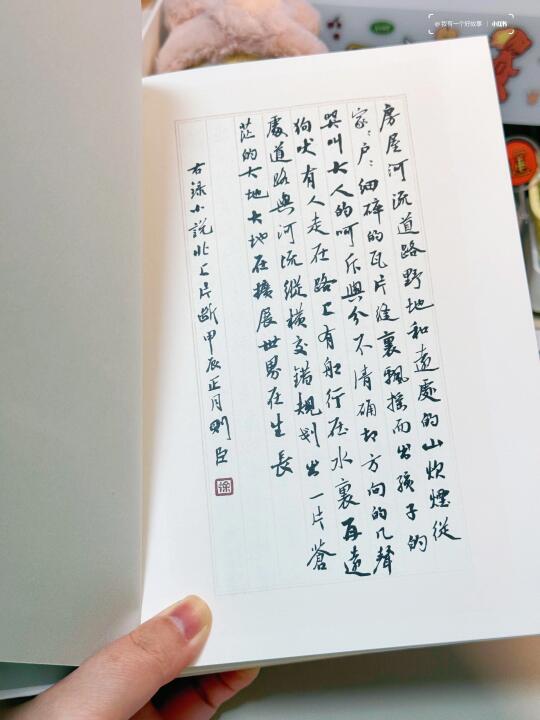 房屋河流道路野地和遠處的山炊煙從
家〻户〻細碎的瓦片縫裏飄摇而出孩子的
哭叫大人的呵斥與分不清确切方向的几聲
狗吠有人走在路上有船行在水裏再遠
處道路與河流縱横交錯規划出一片蒼
茫的大地大地在擴展世界在生長
右録小説北上片斷甲辰正月則臣
徐
@我有一个好故事 | 小红书